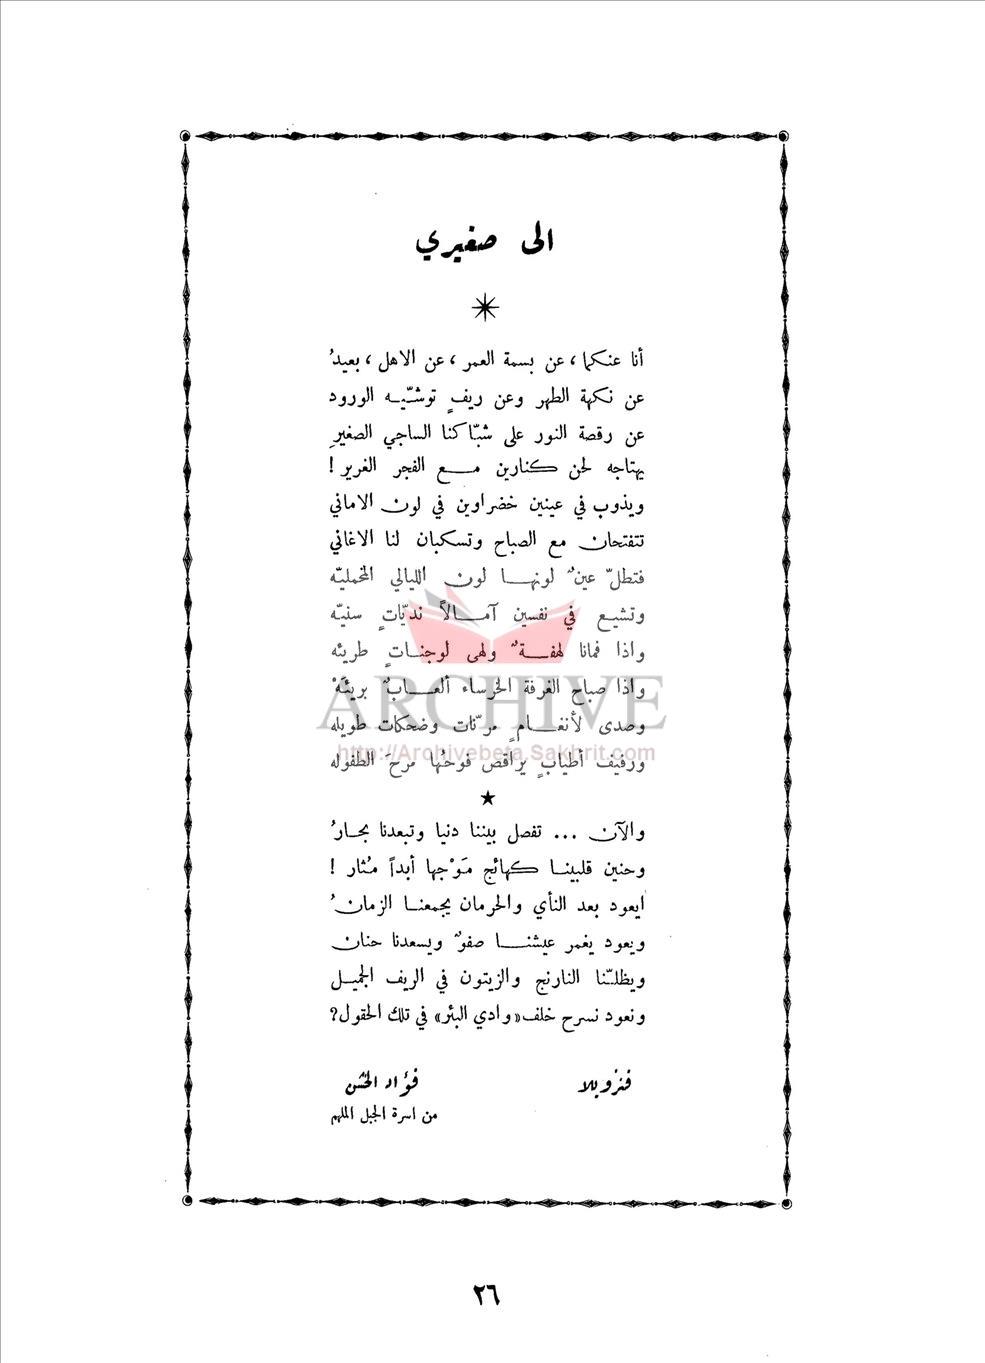 الى صغيري
أنا عنكما ، عن بسمة العمر ، عن الاهل ، بعيدُ
عن نكهة الطهر وعن ريفٍ توشّيه الورود
عن رقصة النور على شبّاكنا الساجي الصغيرِ
يهتاجه لحن كنارين مع الفجر الغرير !
ويذوب في عينين خضراوين في لون الاماني
تتفتحان مع الصباح وتسكبان لنا الاغاني
فتطلّ عينٌ لونها لون الليالي المخمليّه
وتشيع في نفسين آمالاً نديّاتٍ سنيّه
واذا فمانا لهفةٌ ولهى لوجناتٍ طريئه
واذا صباح الغرفة الخرساء ألعابٌ بريئَهْ
وصدى لأنغامٍ مرنّات وضحكات طويله
ورفيف أطيابٍ يراقص فوحُها مرحَ الطفوله
والآن ... تفصل بيننا دنيا وتبعدنا بحارُ
وحنين قلبينا كهائج مَوْجها أبداً مُثار !
ايعود بعد النأي والحرمان يجمعنا الزمانُ
ويعود يغمر عيشنا صفوٌ ويسعدنا حنان
ويظلّنا النارنج والزيتون في الريف الجميل
ونعود نسرح خلف «وادي البئر» في تلك الحقول؟
فنزويلا فؤاد الخشن
من اسرة الجبل الملهم
٢٦
ARCHIVE
http://Archivebeta.Sakhrit.com